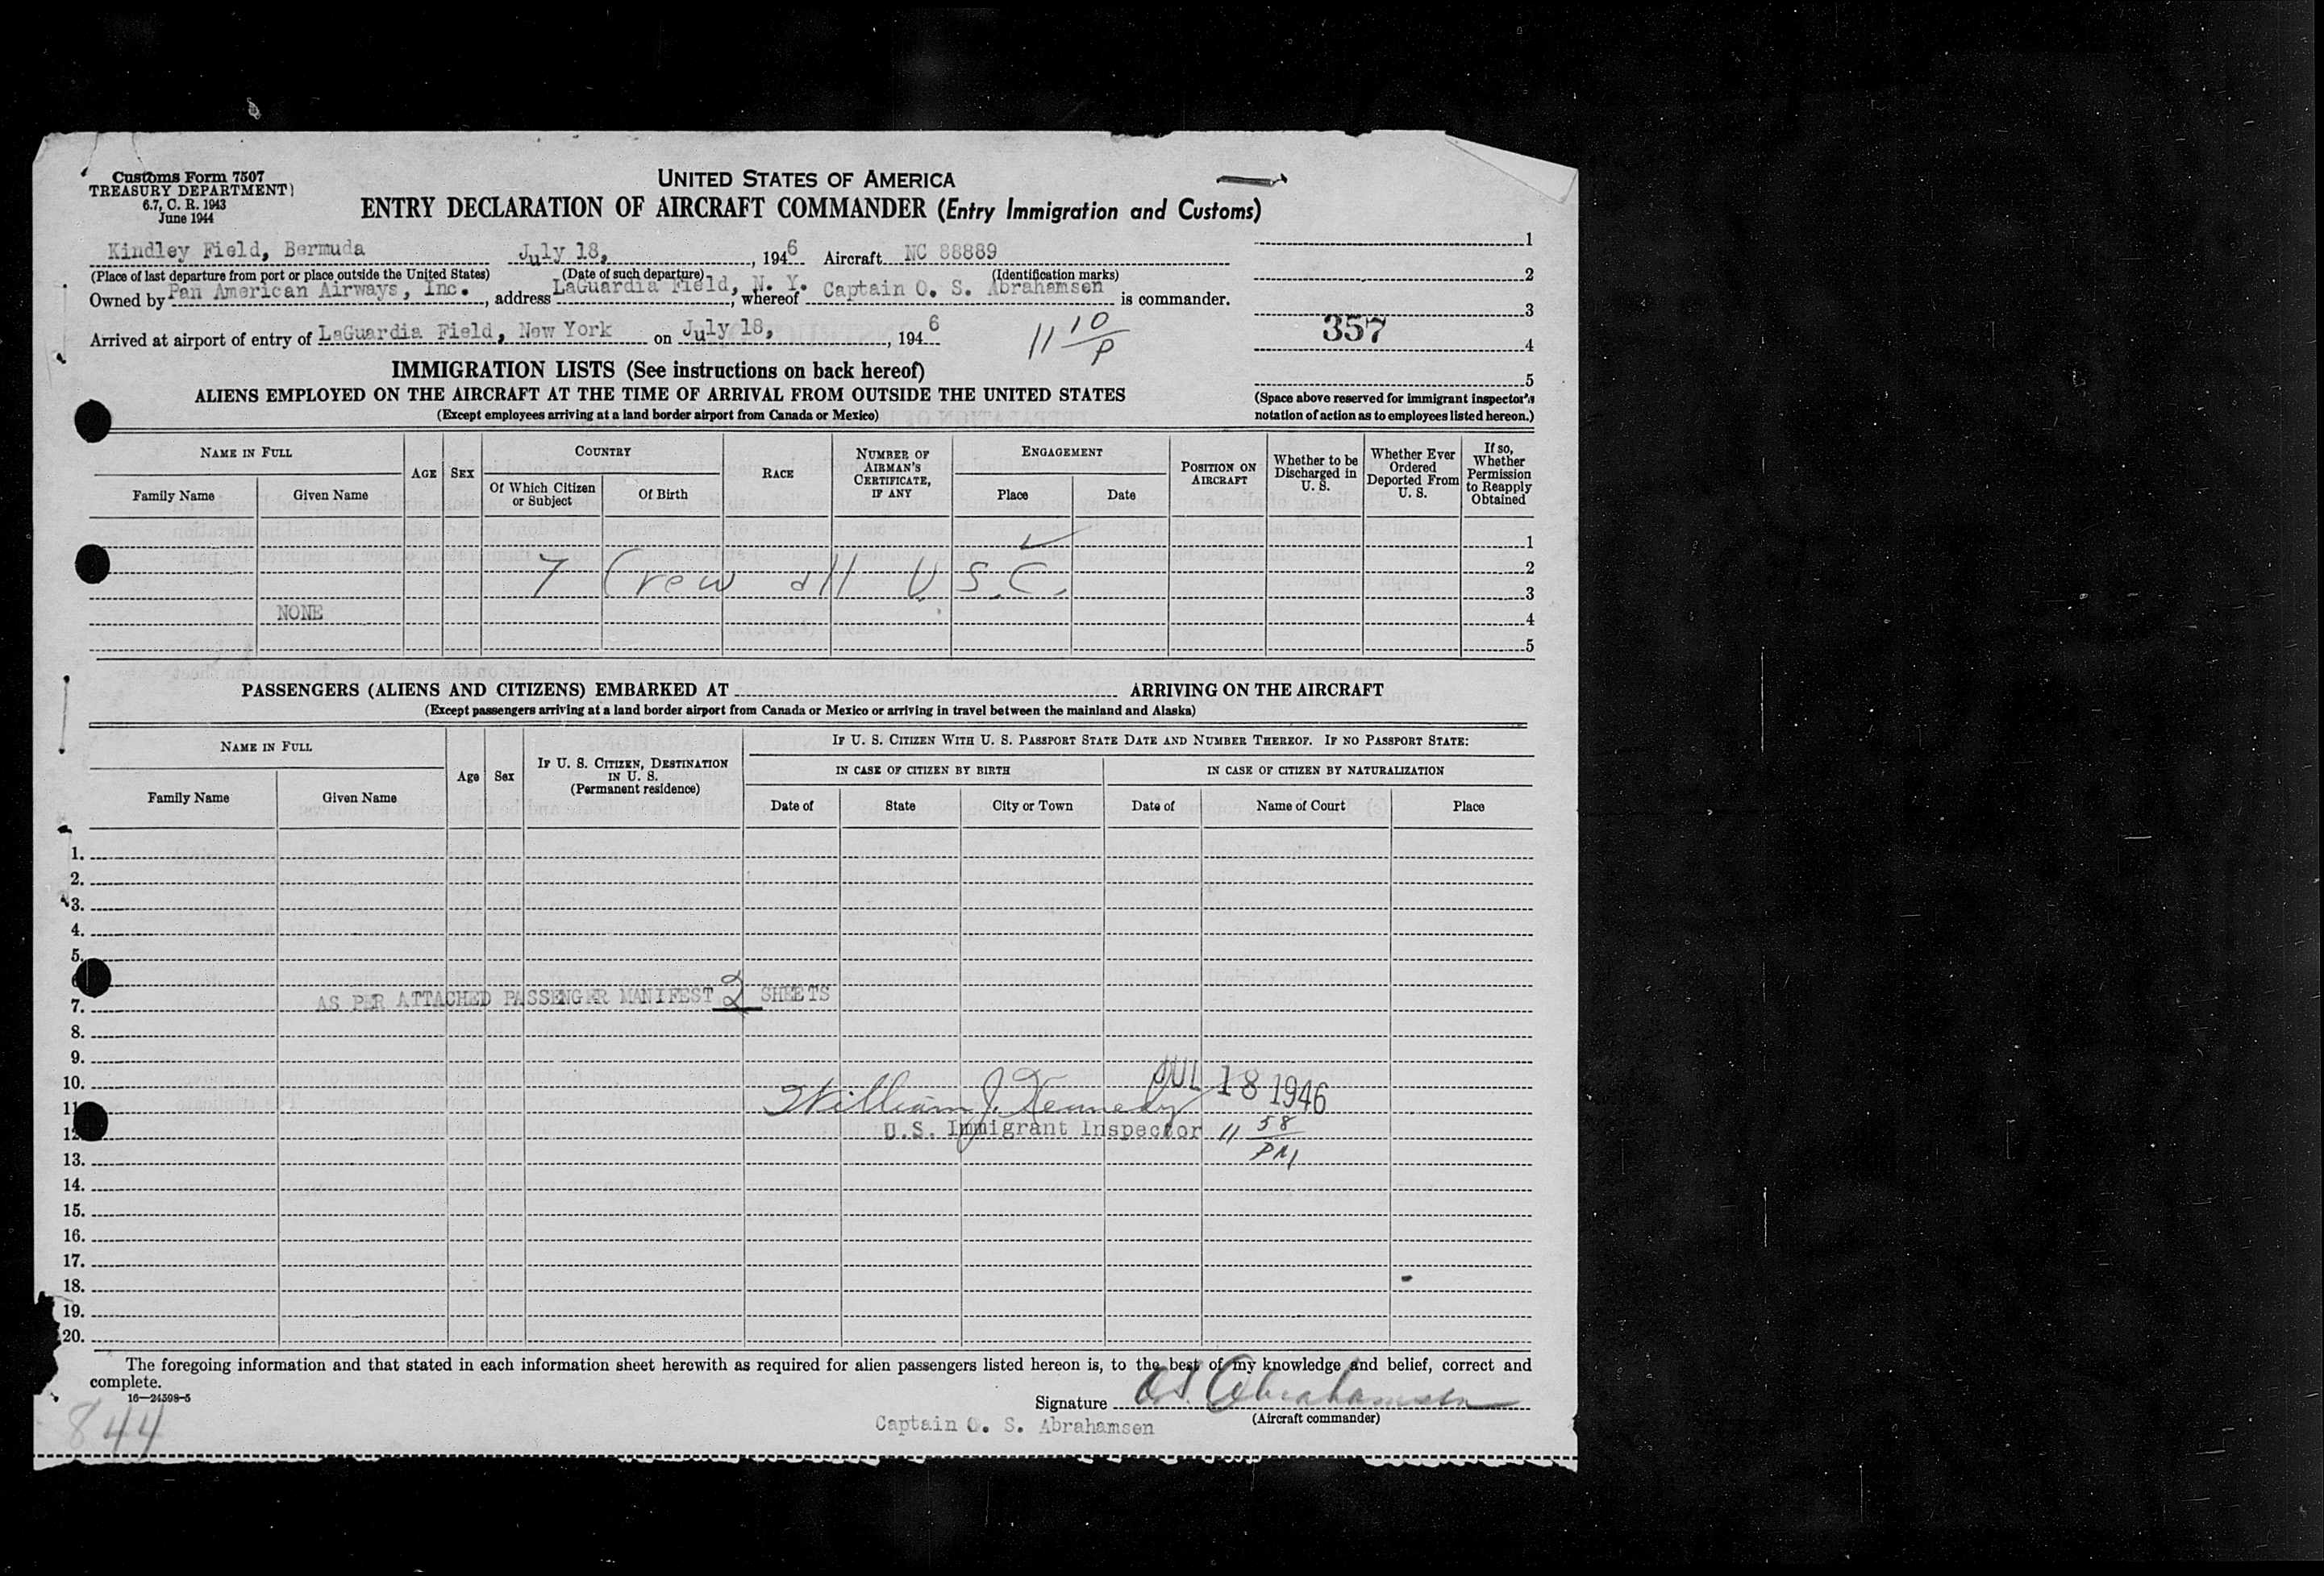 Customs Form 7507
TREASURY DEPARTMENT
6.7, C. R. 1943
June 1944
UNITED STATES OF AMERICA
ENTRY DECLARATION OF AIRCRAFT COMMANDER (Entry Immigration and Customs)
Kindley Field, Bermuda July 18, , 1946 Aircraft NC 88889
(Place of last departure from port or place outside the United States) (Date of such departure) (Identification marks)
Owned by Pan American Airways, Inc. , address LaGuardia Field, N. Y. , whereof Captain O. S. Abrahamsen is commander.
Arrived at airport of entry of LaGuardia Field, New York on July 18, , 1946
11 10 P
1
2
3
357
4
5
(Space above reserved for immigrant inspector's
notation of action as to employees listed hereon.)
IMMIGRATION LISTS (See instructions on back hereof)
ALIENS EMPLOYED ON THE AIRCRAFT AT THE TIME OF ARRIVAL FROM OUTSIDE THE UNITED STATES
(Except employees arriving at a land border airport from Canada or Mexico)
NAME IN FULL
Family Name Given Name
AGE SEX
COUNTRY
Of Which Citizen or Subject Of Birth
RACE
NUMBER OF AIRMAN'S CERTIFICATE, IF ANY
ENGAGEMENT
Place Date
POSITION ON AIRCRAFT
Whether to be Discharged in U. S.
Whether Ever Ordered Deported From U. S.
If so, Whether Permission to Reapply Obtained
1
2
7 Crew all U.S.C.
3
NONE
4
5
PASSENGERS (ALIENS AND CITIZENS) EMBARKED AT ARRIVING ON THE AIRCRAFT
(Except passengers arriving at a land border airport from Canada or Mexico or arriving in travel between the mainland and Alaska)
NAME IN FULL
Family Name Given Name
Age Sex
IF U. S. CITIZEN, DESTINATION IN U. S. (Permanent residence)
IF U. S. CITIZEN WITH U. S. PASSPORT STATE DATE AND NUMBER THEREOF. IF NO PASSPORT STATE:
IN CASE OF CITIZEN BY BIRTH IN CASE OF CITIZEN BY NATURALIZATION
Date of State City or Town Date of Name of Court Place
1.
2.
3.
4.
5.
7. AS PER ATTACHED PASSENGER MANIFEST 2 SHEETS
8.
9.
10. JUL 18 1946
11 William J. Kennedy
12 U.S. Immigrant Inspector 11 58 PM
13.
14.
15.
16.
17.
18.
19.
20.
The foregoing information and that stated in each information sheet herewith as required for alien passengers listed hereon is, to the best of my knowledge and belief, correct and
complete.
16—24598-5
Signature O.S. Abrahamsen
(Aircraft commander)
Captain O. S. Abrahamsen
844